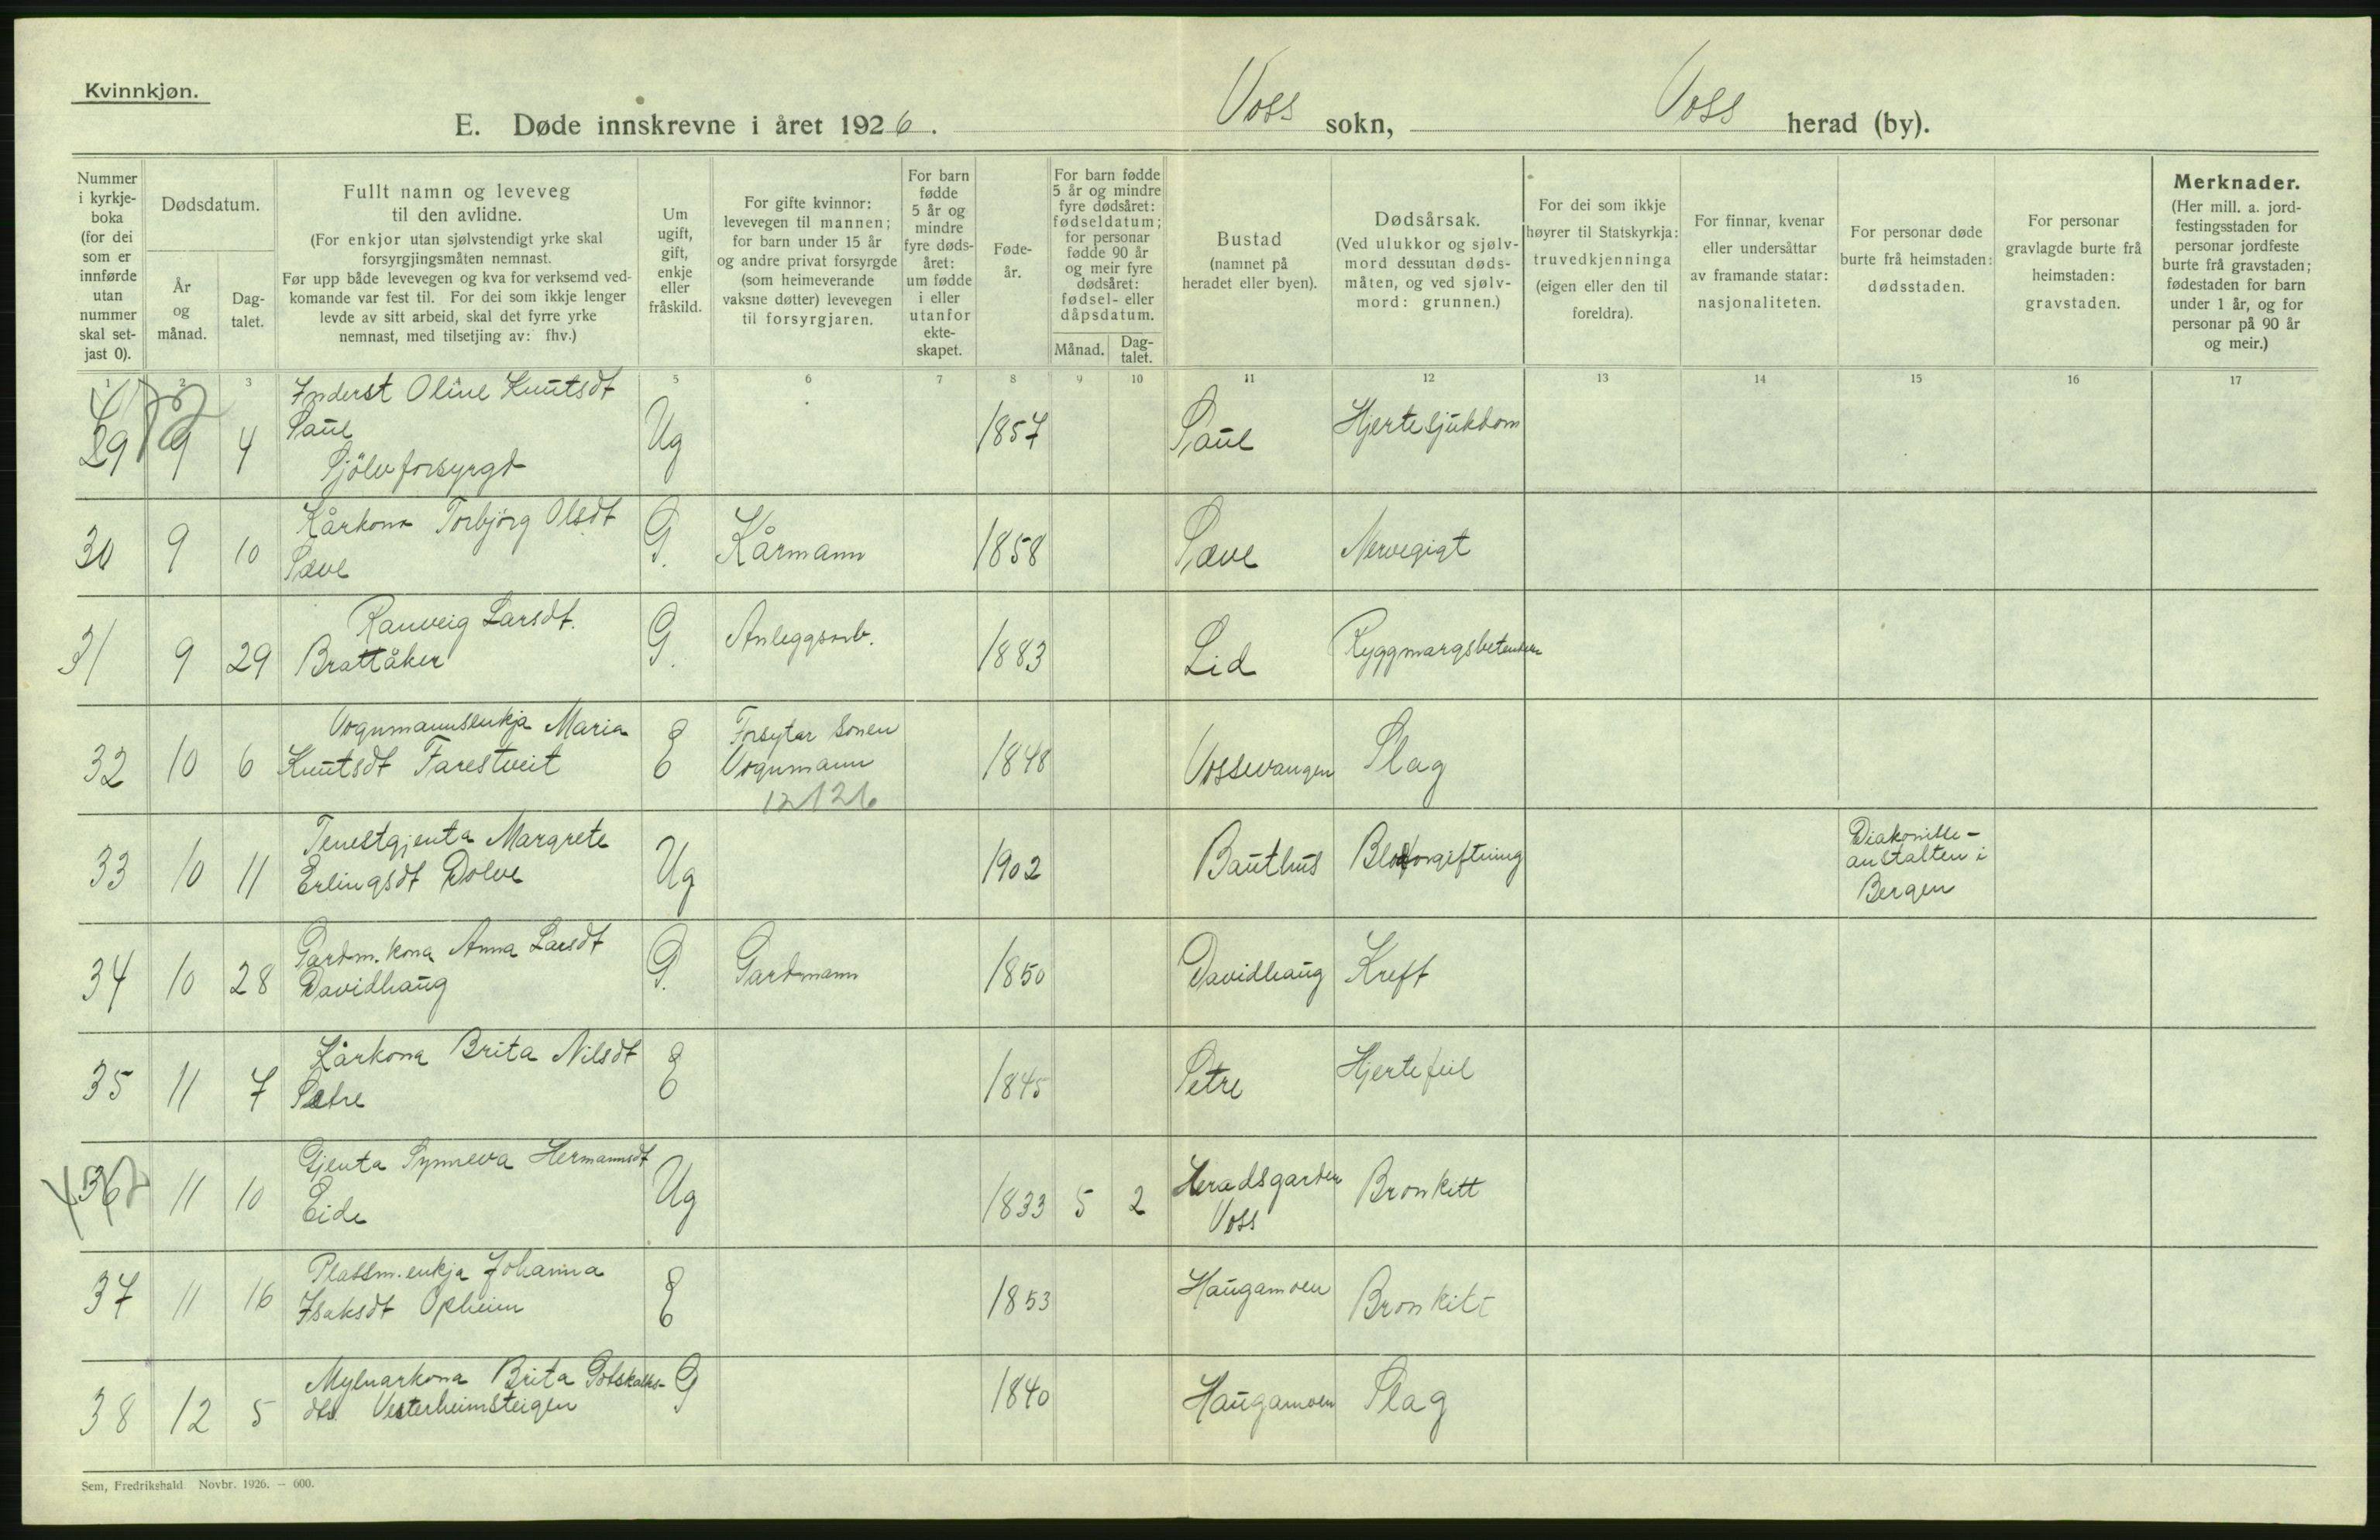 Kvinnkjøn.
E. Døde innskrevne i året 1926. Voss sokn, Voss herad (by).
Nummer
i kyrkje-
boka
(for dei
som er
innførde
utan
nummer
skal set-
jast 0).
Dødsdatum.
År
og
månad.
Dag-
talet.
Fullt namn og leveveg
til den avlidne.
(For enkjor utan sjølvstendigt yrke skal
forsyrgjingsmåten nemnast.
Før upp både levevegen og kva for verksemd ved-
komande var fest til. For dei som ikkje lenger
levde av sitt arbeid, skal det fyrre yrke
nemnast, med tilsetjing av: fhv.)
Um
ugift,
gift,
enkje
eller
fråskild.
For gifte kvinnor:
levevegen til mannen;
for barn under 15 år
og andre privat forsyrgde
(som heimeverande
vaksne døtter) levevegen
til forsyrgjaren.
For barn
fødde
5 år og
mindre
fyre døds-
året:
um fødde
i eller
utanfor
ekte-
skapet.
Føde-
år.
For barn fødde
5 år og mindre
fyre dødsåret:
fødseldatum;
for personar
fødde 90 år
og meir fyre
dødsåret:
fødsel- eller
dåpsdatum.
Månad.
Dag-
talet.
Bustad
(namnet på
heradet eller byen).
Dødsårsak.
(Ved ulukkor og sjølv-
mord dessutan døds-
måten, og ved sjølv-
mord: grunnen.)
For dei som ikkje
høyrer til Statskyrkja:
truvedkjenninga
(eigen eller den til
foreldra).
For finnar, kvenar
eller undersåttar
av framande statar:
nasjonaliteten.
For personar døde
burte frå heimstaden:
dødsstaden.
For personar
gravlagde burte frå
heimstaden:
gravstaden.
Merknader.
(Her mill. a. jord-
festingsstaden for
personar jordfeste
burte frå gravstaden;
fødestaden for barn
under 1 år, og for
personar på 90 år
og meir.)
1 2 3 5 6 7 8 9 10 11 12 13 14 15 16 17
Inderst Oline Knutsdt
29 9 4 Saue Ug 1857 Saue Hjertesjukdom
Sjölvforsyrgd
Kårkona Torbjörg Olsdt
30 9 10 Sæve G. Kårmann 1858 Sæve Nervegigt
Ranveig Larsdt.
31 9 29 Brattåker G. Anleggsarb. 1883 Lid
Vognmannsenkja Maria
32 10 6 Knutsdt Farestveit E Forsytar sonen
Vognmann 1848 Vossevangen Slag
12126
Tenestgjenta Margrete
33 10 11 Erlingsdt Dolve Ug 1902 Bauthus Blodforgiftning Diakonisse-
anstalten i
Bergen
Gardm.kona Anna Larsdt
34 10 28 Davidhaug G. Gardmann 1850 Davidhaug Kreft
Kårkona Brita Nilsdt
35 11 7 Sætre E 1845 Setre Hjertefeil
Gjenta Synneva Hermannsdt
36 11 10 Eide Ug 1833 5 2 Heradsgarden
Voss Bronkitt
Plassm.enkja Johanna
37 11 16 Isaksdt Opheim E 1853 Haugamoen Bronkitt
Mylnarkona Brita Gotskalks-
38 12 5 dtr. Vesterheimsteigen G 1840 Haugamoen Slag
Sem, Fredrikshald Novbr. 1926. — 600.